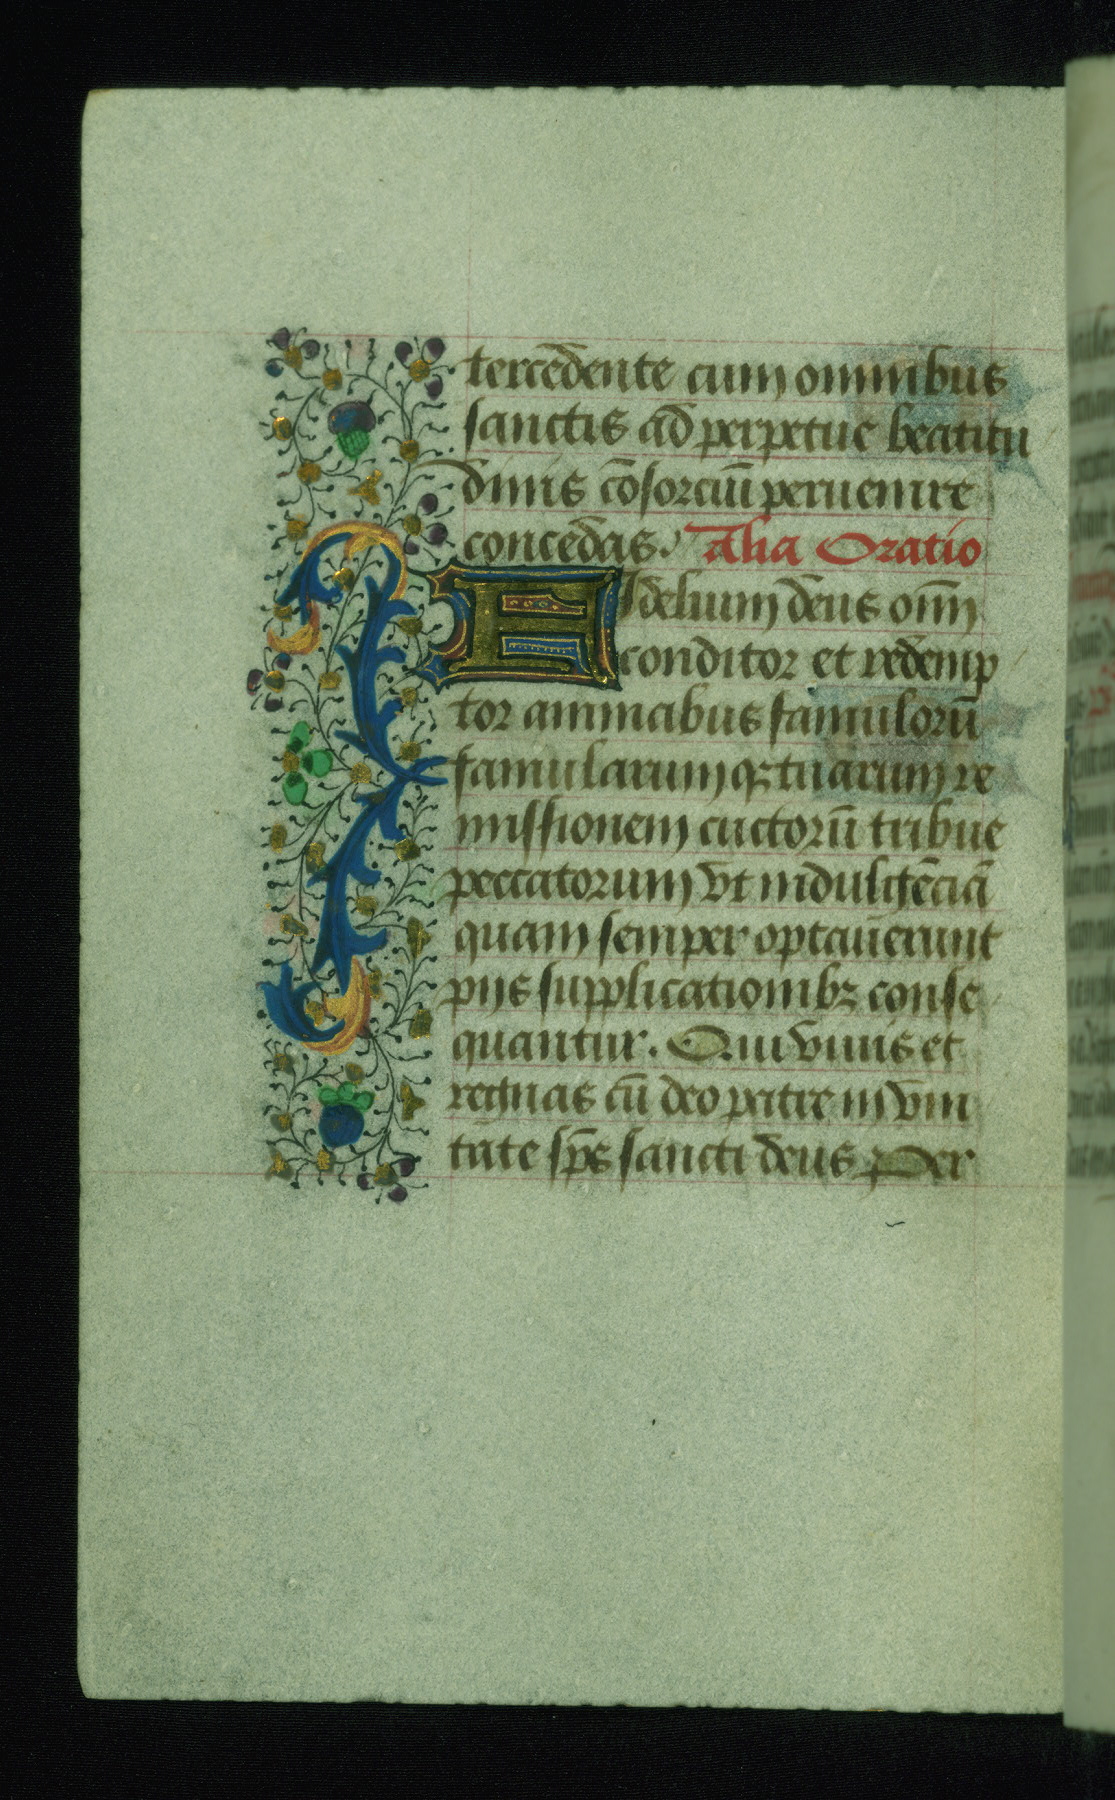 tercedente cum omnibus
sanctis ad perpetue beatitu
dinis cōsorciū peruenire
concedas. Alia Oratio
Fidelium deus om̄
conditor et redemp
tor animabus famulorū
famularumqꝫ tuarum re
missionem cūctorū tribue
peccatorum vt indulgēciā
quam semper optauerunt
pijs supplicationibꝫ conse
quantur. Qui viuis et
regnas cū deo patre in vni
tate sp̄s sancti deus Per